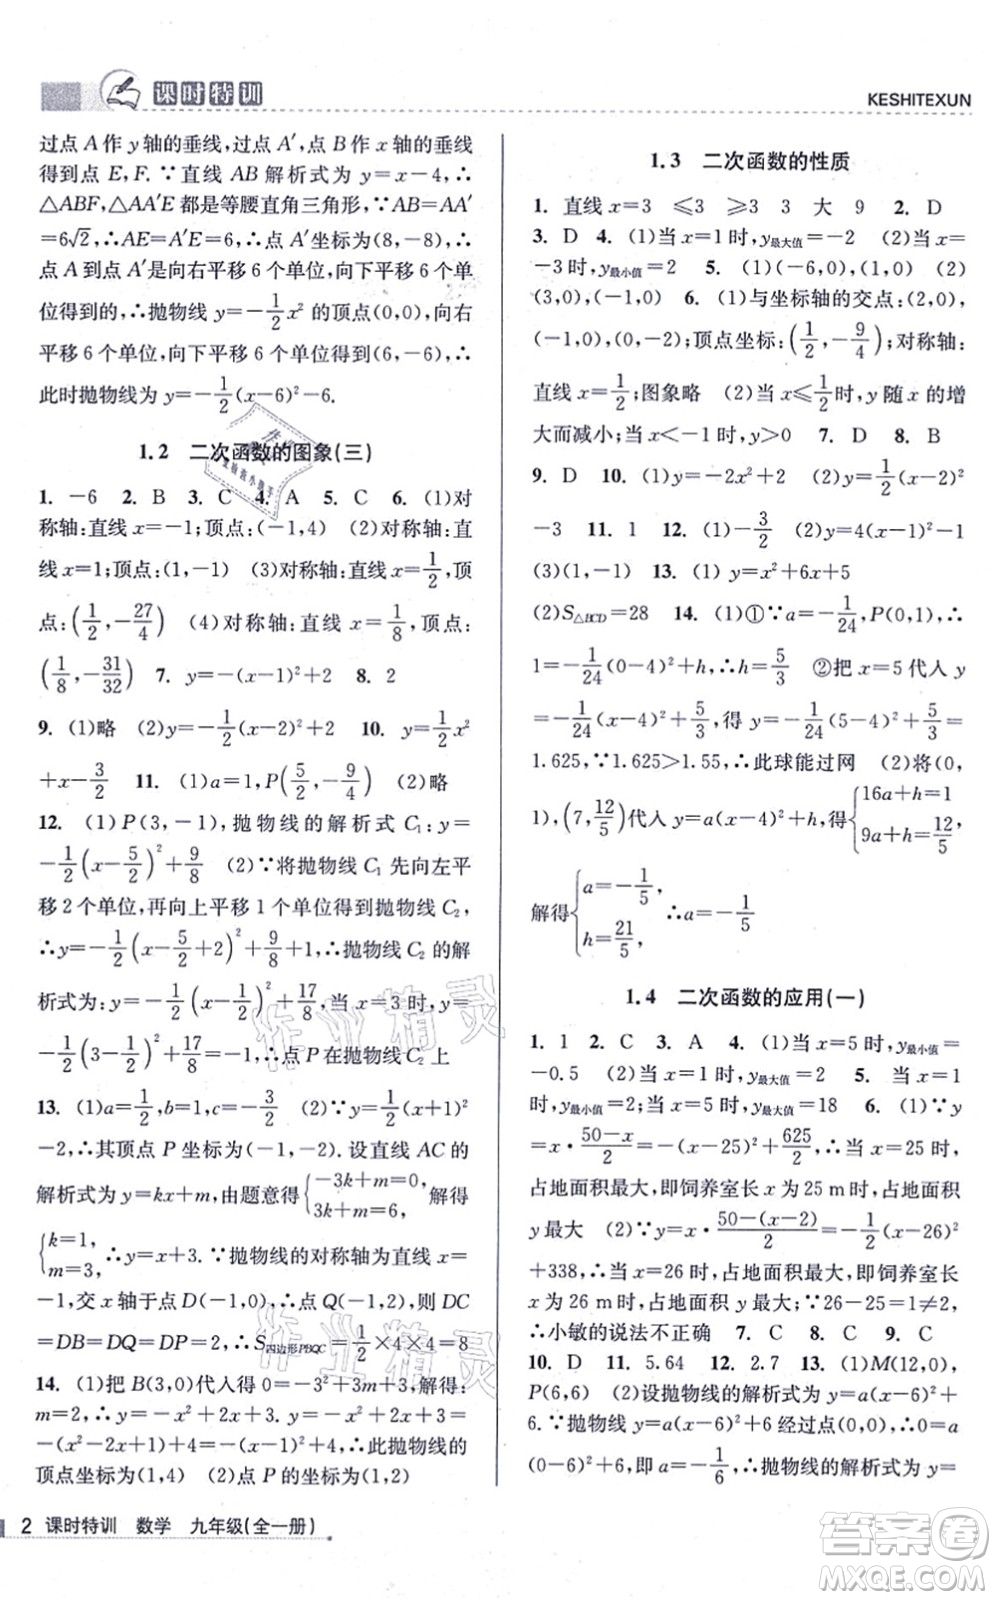 课时特训
KESHITEXUN
过点 A 作 y 轴的垂线,过点 A′,点 B 作 x 轴的垂线
结点 E, F. ∵直线 AB 解析式为 y=x-4,∴
△ABF,△AA′E 都是等腰直角三角形,∵AB=AA′
=6√2,∴AE=A′E=6,∴点 A′坐标为(8,-8),∴
点 A 到点 A′是向右平移 6 个单位,向下平移 6 个单
位得到的,∴抛物线 y=-1/2x² 的顶点(0,0),向右
平移 6 个单位,向下平移 6 个单位得到(6,-6),∴
此时抛物线为 y=-1/2(x-6)²-6.
1.2 二次函数的图象(三)
1. -6 2. B 3. C 4. A 5. C 6. (1)对
称轴:直线 x=-1;顶点:(-1,4) (2)对称轴:直
线 x=1;顶点:(1,-1) (3)对称轴:直线 x=1/2,顶
点:(1/2,-27/4) (4)对称轴:直线 x=1/8,顶点:
(1/8,-31/32) 7. y=-(x-1)²+2 8. 2
9. (1)略 (2)y=-1/2(x-2)²+2 10. y=1/2x²
+x-3/2 11. (1)a=1,P(5/2,-9/4) (2)略
12. (1)P(3,-1),抛物线的解析式 C₁:y=
-1/2(x-5/2)²+9/8 (2)∵将抛物线 C₁ 先向左平
移 2 个单位,再向上平移 1 个单位得到抛物线 C₂,
∴y=-1/2(x-5/2+2)²+9/8+1,∴抛物线 C₂ 的解
析式为:y=-1/2(x-1/2)²+17/8,当 x=3 时,y=
-1/2(3-1/2)²+17/8=-1,∴点 P 在抛物线 C₂ 上
13. (1)a=1/2,b=1,c=-3/2 (2)∵y=1/2(x+1)²
-2,∴其顶点 P 坐标为(-1,-2). 设直线 AC 的
解析式为 y=kx+m,由题意得{-3k+m=0, 3k+m=6, 解得
{k=1, m=3, ∴y=x+3. ∵抛物线的对称轴为直线 x=
-1,交 x 轴于点 D(-1,0),∴点 Q(-1,2),则 DC
=DB=DQ=DP=2,∴S四边形PBQC=1/2×4×4=8
14. (1)把 B(3,0)代入得 0=-3²+3m+3,解得:
m=2,∴y=-x²+2x+3=-(x²-2x)+3=
-(x²-2x+1-1)+3=-(x-1)²+4,此抛物线的
顶点坐标为(1,4) (2)点 P 的坐标为(1,2)
1.3 二次函数的性质
1. 直线 x=3 ≤3 ≥3 3 大 9 2. D
3. D 4. (1)当 x=1 时,y最大值=-2 (2)当 x=
-3 时,y最小值=2 5. (1)(-6,0),(1,0) (2)
(3,0),(-1,0) 6. (1)与坐标轴的交点:(2,0),
(-1,0),(0,-2);顶点坐标:(1/2,-9/4);对称轴:
直线 x=1/2;图象略 (2)当 x≤1/2时,y 随 x 的增
大而减小;当 x≥1/2时,y 随 x 的增大而增大 7. D 8. C
9. D 10. (1)y=-2x²+4x (2)-2
-3 11. 1 12. (1)-3/2 (2)y=4(x-1)²-1
(3)(1,-1) 13. (1) y=x²+6x+5
(2)S△BCD=28 14. (1)①∵a=-1/24,P(0,1),∴
1=-1/24(0-4)²+h,∴h=5/3 ②把 x=5 代入 y
=-1/24(x-4)²+5/3,得 y=-1/24(5-4)²+5/3=
1.625,∵1.625>1.55,∴此球能过网 (2)将(0,
1),(7,12/5)代入 y=a(x-4)²+h,得{16a+h=1 9a+h=12/5,
解得{a=-1/5, h=21/5, ∴a=-1/5
1.4 二次函数的应用(一)
1. 1 2. C 3. A 4. (1)当 x=5 时,y最小值=
-0.5 (2)当 x=1 时,y最大值=2 5. 当 x=1
时,y最小值=2;当 x=5 时,y最大值=18 6. (1)∵y
=x·(50-x)/2=-1/2(x-25)²+625/2,∴当 x=25 时,
占地面积最大,即饲养室长 x 为 25 m 时,占地面积
y 最大 (2)∵y=x·(50-(x-2))/2=-1/2(x-26)²
+338,∴当 x=26 时,占地面积最大,即饲养室长
x 为 26 m 时,占地面积 y 最大;∵26-25=1≠2,
∴小敏的说法不正确 7. C 8. C 9. C
10. D 11. 5.64 12. 2.7 13. (1)M(12,0),
P(6,6) (2)设抛物线的解析式为 y=a(x-6)²+
6. ∵抛物线 y=a(x-6)²+6 经过点(0,0),∴0=a
(0-6)²+6,即 a=-1/6,∴抛物线的解析式为 y=
2 课时特训 数学 九年级(全一册)
作业精灵
作业精灵
答案
MXQE.COM